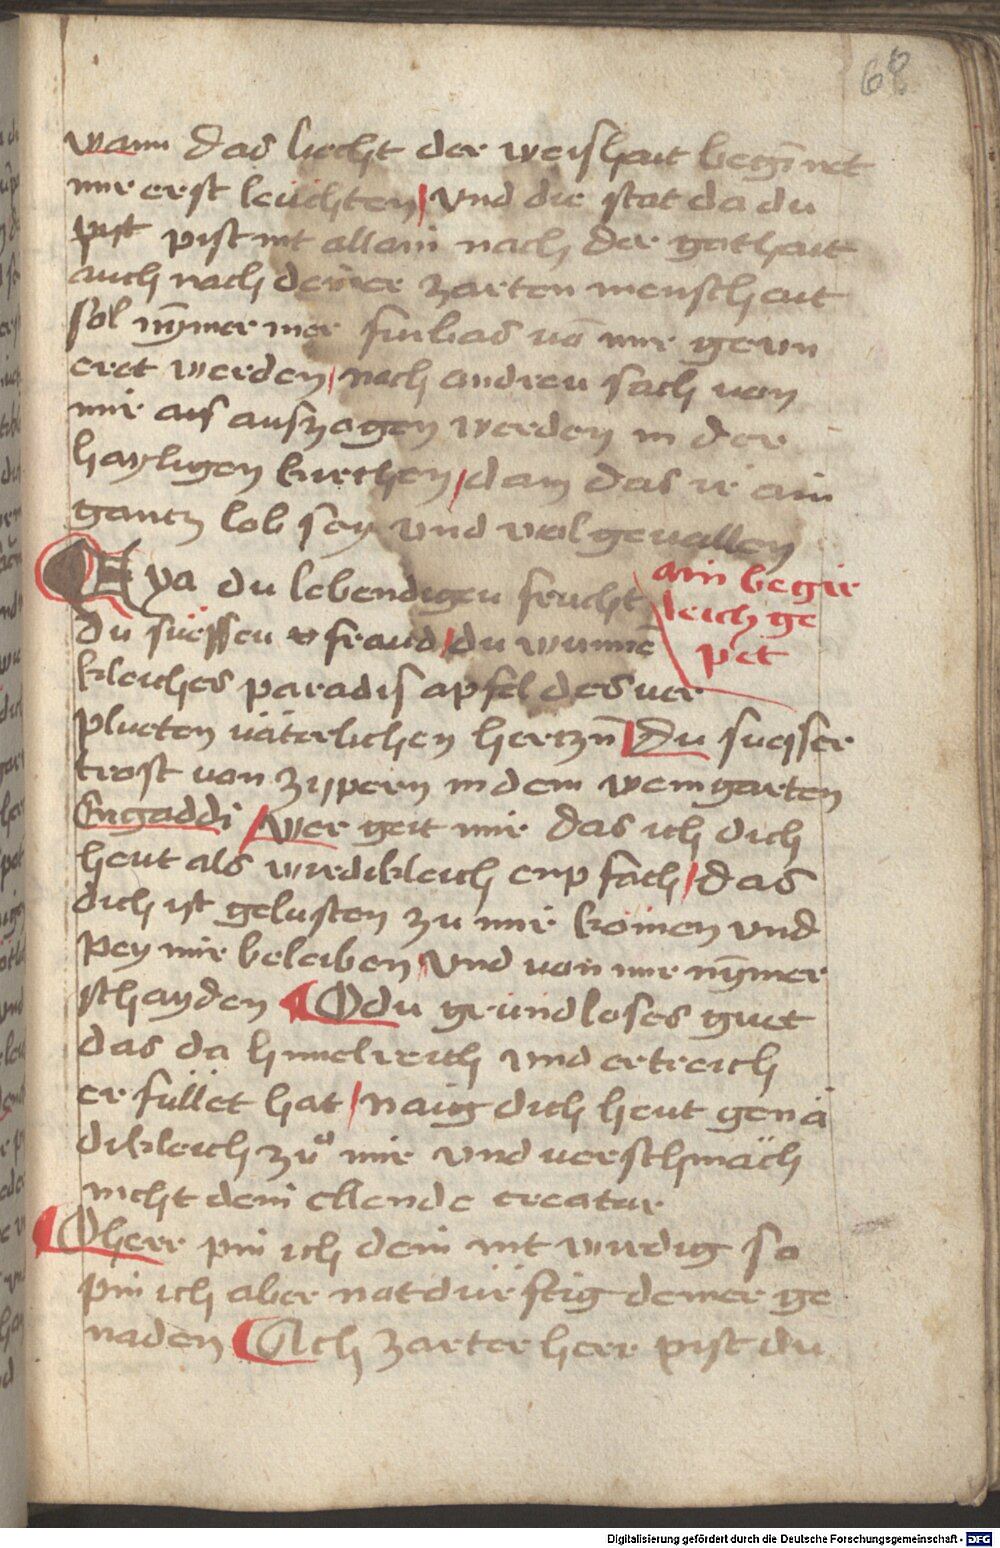 68
wann das liecht der weishait begīnet
mir erst leuchten / vnd die stat da du
pist pist nit allain nach der gothait
auch nach deiner zarten menschait
sol nȳmer mer furbas vō mir gevn
eret werden / nach andreu sach von
mir aus auszogen werden in der
hayligen kirchen / dann das ir ain
gantz lob sey vnd wolgevallen
Eya du lebendigeu frucht
ain begir
leich ge
pet
du süesseu freud / du wunne
kleiches paradis apfel des ver
plueten väterlichen hertzn̄ Du suesser
trost von zypern in dem weingarten
Engaddi / Wer geit mir das ich dich
heut als wirdikleich enpfach / das
dich ist gelusten zu mir kömen vnd
pey mir beleiben / vnd von mir nȳmer
schayden O du grundloses guet
das da himelreich vnd ertreich
erfüllet hat / naig dich heut genä
dikleich zů mir vnd verschmäch
nicht dein ellende creatur
O herr pin ich dein nit wirdig so
pin ich aber notdürftig deiner ge
naden Ach zarter herr pist du
Digitalisierung gefördert durch die Deutsche Forschungsgemeinschaft - DFG